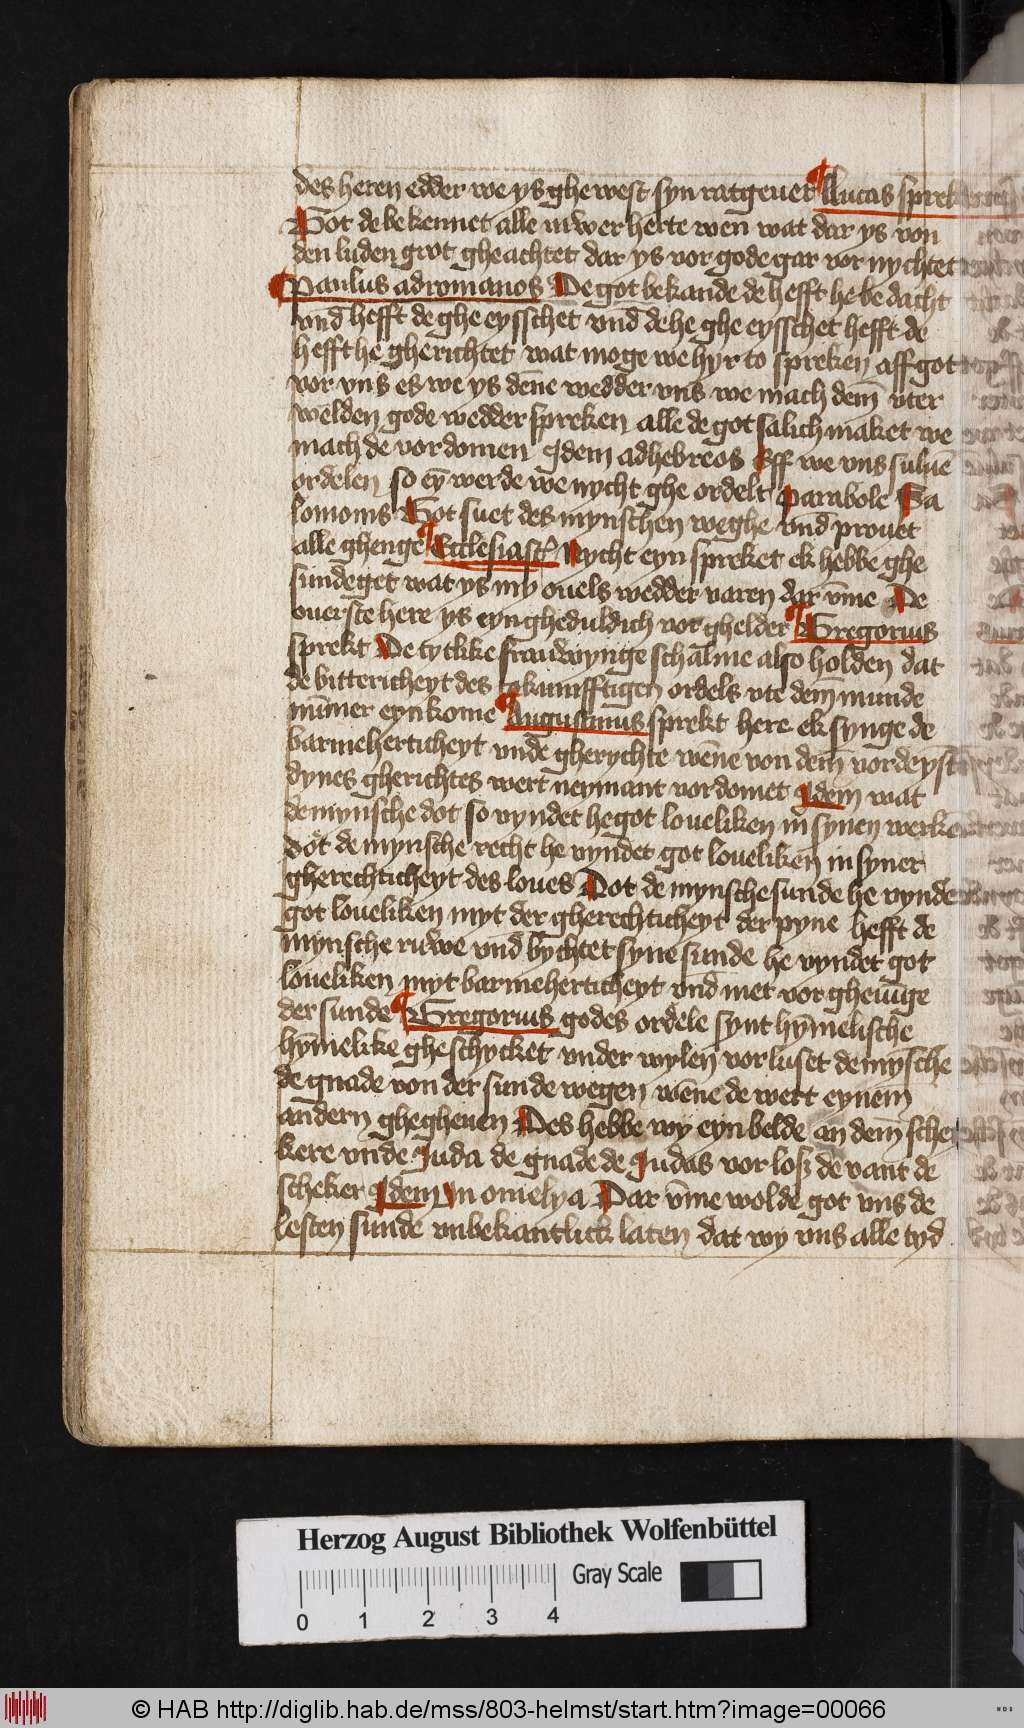 des heren edder we ys ghewest syn ratgeuer Lucas sprekt
Got de bekennet alle iuwer herte wen̄ wat dar ys von
den luden grot gheachtet dar ys vor gode gar vor nychtet
Paulus ad romanos De got bekande de hefft he bedacht
vnd̄ hefft de ghe eysschet vnd̄ de he ghe eysschet hefft de
hefft he gherichtet wat moge we hyr to spreken aff got
vor vns es we ys den̄e wedder vns we mach dem̄ vter
welden gode wedder spreken alle de got salich maket we
mach de vordomen Idem ad hebreos Eff we vns suluē
ordelen so eȳ werde we nycht ghe ordelt Parabole Sa
lomonis Got suet des mynschen weghe vnd̄ prouet
alle ghenge Ecclesiast Nycht eyn spreket ek hebbe ghe
sundeget wat ys my ouels wedder varen dar vm̄e De
ouerste here ys eyn gheduldich vorghelder Gregorius
sprekt De tytlike frauwynge schal me also holden dat
de bittericheyt des tokumfftigen ordels vte dem̄ munde
nūmer eyn kome Augustinus sprekt here ek synge de
barmeherticheyt vnde gherychte wen̄e von dem̄ vordeynst
dynes gherichtes wert neymant vordomet Idem wat
de mynsche dot so vyndet he got loueliken in synen werken
dot de mynsche recht he vyndet got loueliken in syner
gherechticheyt des loues Dot de mynsche sunde he vyndet
got loueliken myt der gherechticheyt der pyne hefft de
mynsche ruwe vnd̄ bychtet syne sunde he vyndet got
loueliken myt barmeherticheyt vnd̄ met vorgheuīge
der sunde Gregorius godes ordele synt hȳmelische
hȳmelike gheschycket vnder wylen vorluset de mysche
de gnade von der sunde wegen wen̄e de wert eynem
andern ghegheuen Des hebbe wy eyn belde an dem̄ sche
kere vnde Iuda de gnade de Iudas vorlosz de vant de
scheker Idem In omelya Dar vm̄e wolde got vns de
lesten sunde vnbekantlick laten dat wy vns alle tyd
Herzog August Bibliothek Wolfenbüttel
Gray Scale
0 1 2 3 4
© HAB http://diglib.hab.de/mss/803-helmst/start.htm?image=00066